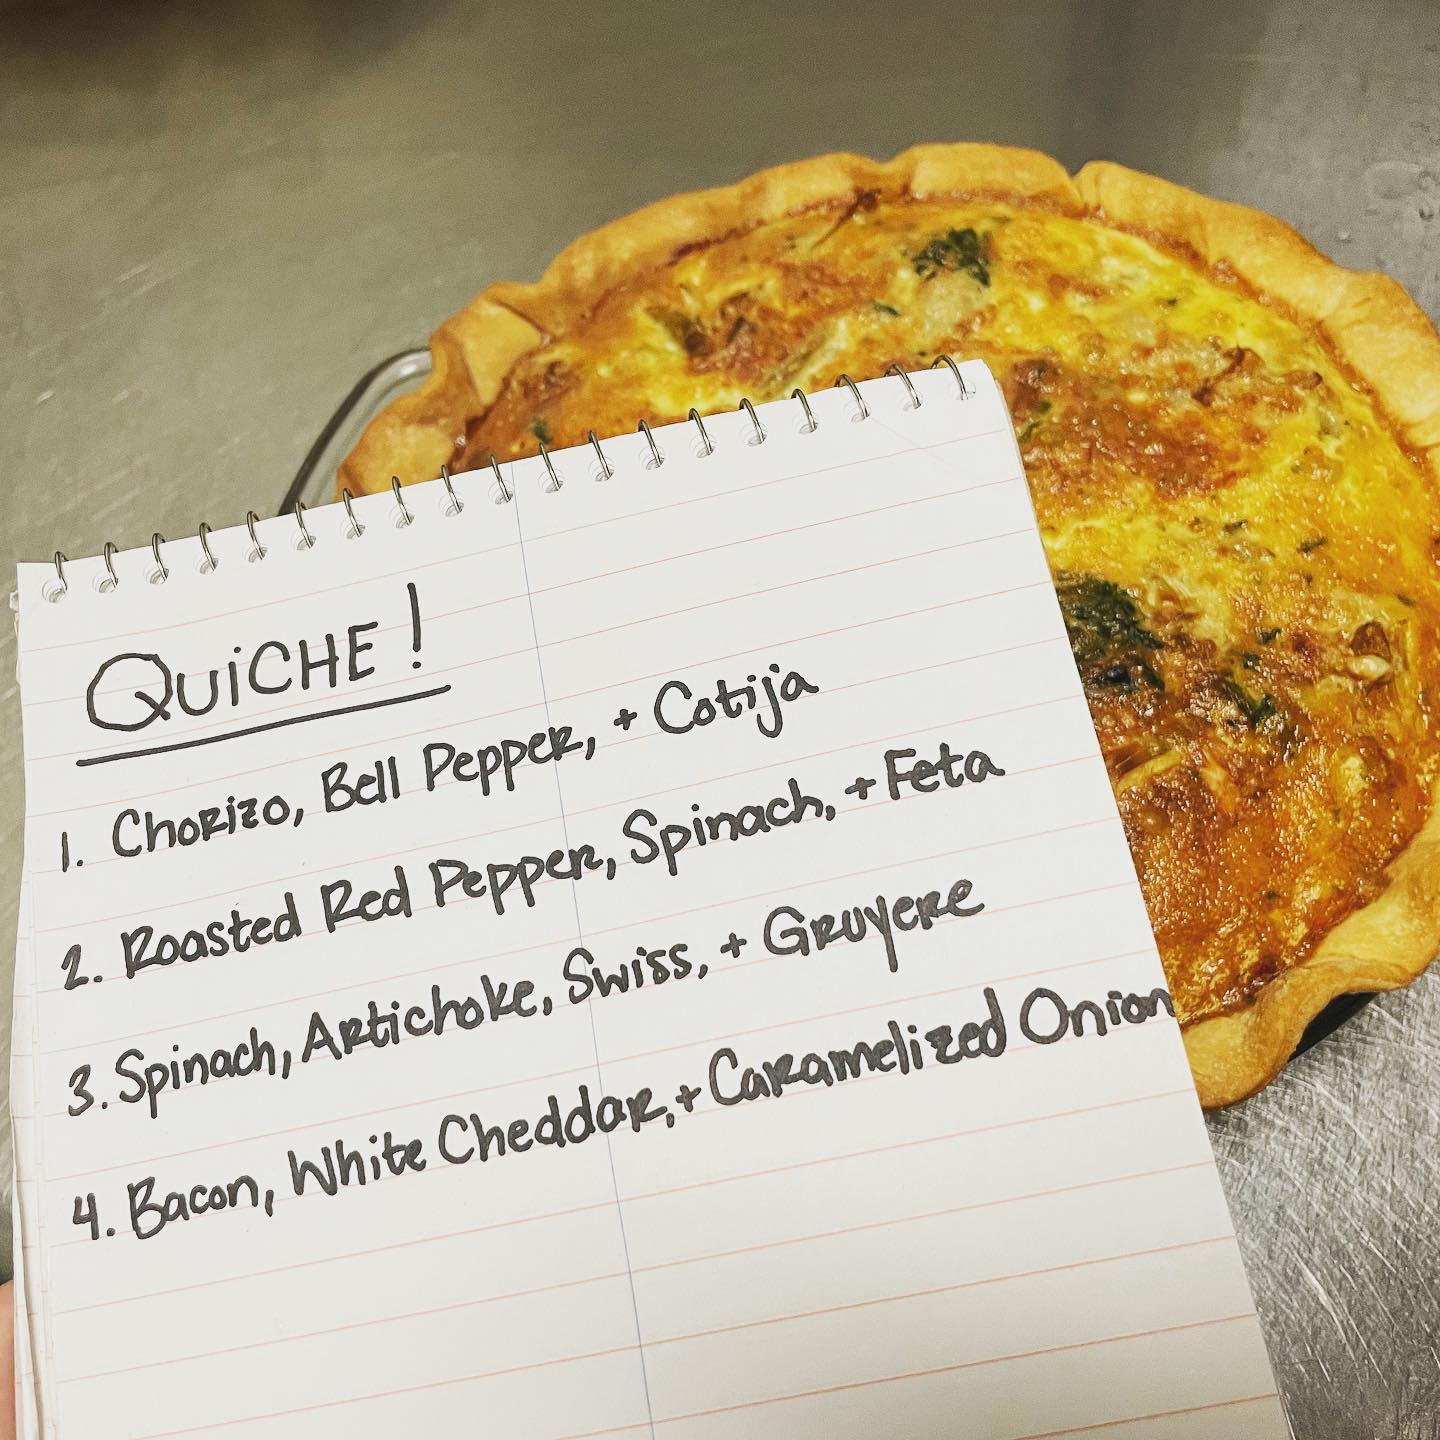 QUiCHE!
1. Chorizo, Bell Pepper, + Cotija
2. Roasted Red Pepper, Spinach, + Feta
3. Spinach, Artichoke, Swiss, + Gruyere
4. Bacon, White Cheddar, + Caramelized Onion